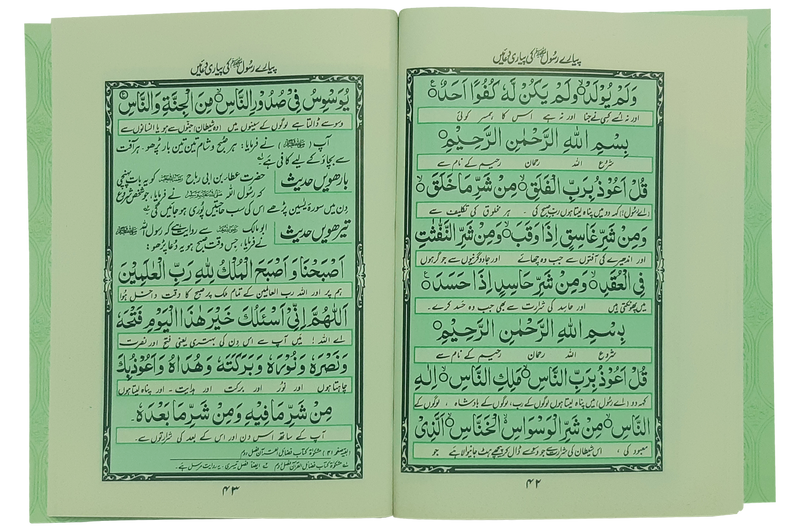 پیارے رسول ﷺ کی پیاری دعائیں
وَلَمْ يُوْلَدْ۝ وَلَمْ يَكُنْ لَّهٗ كُفُوًا اَحَدٌ۝
اور نہ اُسے کسی نے جنا اور نہ ہے اس کا ہمسر کوئی
بِسْمِ اللّٰهِ الرَّحْمٰنِ الرَّحِيْمِ
شروع اللہ رحمان رحیم کے نام سے
قُلْ اَعُوْذُ بِرَبِّ الْفَلَقِ۝ مِنْ شَرِّ مَا خَلَقَ۝
(اے رسول) کہہ دو میں پناہ لیتا ہوں رب صبح کی ۔ ہر مخلوق کی تکلیف سے
وَمِنْ شَرِّ غَاسِقٍ اِذَا وَقَبَ۝ وَمِنْ شَرِّ النَّفّٰثٰتِ
اور اندھیرے کی آفتوں سے جب وہ چھائے اور جادوگرنیوں سے جو گرہوں
فِى الْعُقَدِ۝ وَمِنْ شَرِّ حَاسِدٍ اِذَا حَسَدَ۝
میں پھونکتی ہیں اور حاسد کی شرارت سے بھی جب وہ حسد کرے۔
بِسْمِ اللّٰهِ الرَّحْمٰنِ الرَّحِيْمِ
شروع اللہ رحمان رحیم کے نام سے
قُلْ اَعُوْذُ بِرَبِّ النَّاسِ۝ مَلِكِ النَّاسِ۝ اِلٰهِ
کہہ دو (اے رسول) میں پناہ لیتا ہوں لوگوں کے رب، لوگوں کے بادشاہ ، لوگوں کے
النَّاسِ۝ مِنْ شَرِّ الْوَسْوَاسِ الْخَنَّاسِ۝ الَّذِىْ
معبود کی ، اس شیطان کی شرارت سے جو وسوسے ڈال کر پیچھے ہٹ جانیوالا ہے جو
۴۲
پیارے رسول ﷺ کی پیاری دعائیں
يُوَسْوِسُ فِىْ صُدُوْرِ النَّاسِ۝ مِنَ الْجِنَّةِ وَالنَّاسِ۝
وسوسے ڈالتا ہے لوگوں کے سینوں میں (وہ شیطان) جنوں سے ہو یا انسانوں سے
آپ (ﷺ) نے فرمایا: ہر صبح و شام تین تین بار پڑھو۔ ہر آفت
سے بچاؤ کے لیے کافی ہے
بارھویں حدیث حضرت عطاء بن ابی رباح کو یہ بات پہنچی
کہ رسول اللہ ﷺ نے فرمایا: جو شخص شروع
دن میں سورۂ یٰسین پڑھے اس کی سب حاجتیں پوری ہو جائیں گی
تیرھویں حدیث ابو مالک سے روایت ہے کہ رسول اللہ ﷺ
نے فرمایا: جس وقت صبح ہو یہ دعا پڑھو:
اَصْبَحْنَا وَاَصْبَحَ الْمُلْكُ لِلّٰهِ رَبِّ الْعٰلَمِيْنَ
ہم پر اور اللہ رب العالمین کے تمام ملک پر صبح کا وقت داخل ہوا
اَللّٰهُمَّ اِنِّىْ اَسْئَلُكَ خَيْرَ هٰذَا الْيَوْمِ فَتْحَهٗ
اے اللہ! میں آپ سے اس دن کی بہتری یعنی فتح اور نصرت
وَنَصْرَهٗ وَنُوْرَهٗ وَبَرَكَتَهٗ وَهُدَاهُ وَاَعُوْذُ بِكَ
چاہتا ہوں اور نور اور برکت اور ہدایت ۔ اور پناہ لیتا ہوں
مِنْ شَرِّ مَا فِيْهِ وَمِنْ شَرِّ مَا بَعْدَهٗ۔
آپ کے ساتھ اس دن اور اس کے بعد کی شرارتوں سے۔
۴۳